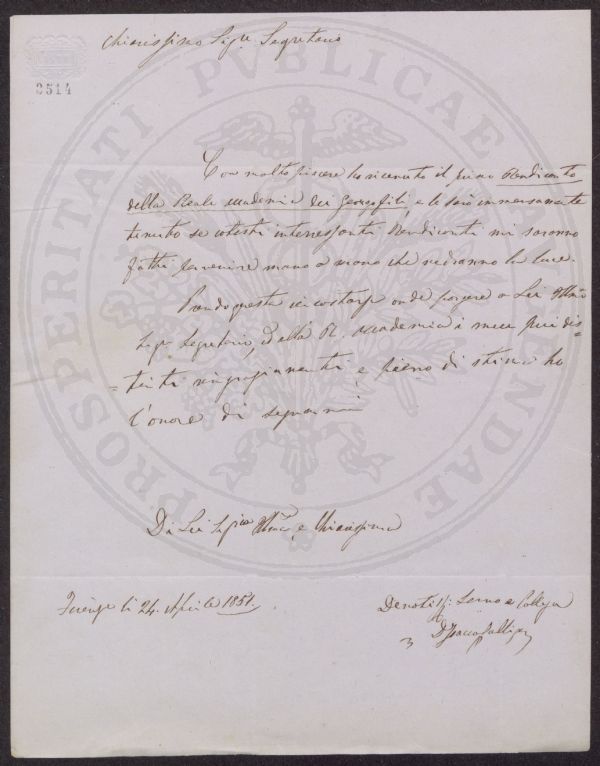 Chiarissimo Sig.re Segretario
2514
PROSPERITATI PVBLICAE AVGENDAE
Con molto piacere ho ricevuto il primo Rendiconto
della Reale Accademia dei Georgofili, e le sarò immensamente
tenuto se cotesti interessanti Rendiconti mi saranno
fatti pervenire mano a mano che vedranno la luce.
Prendo questa circostanza onde porgere a Lei Illmo
Sigr Segretario, e alla R. Accademia i miei più dis=
=tinti ringraziamenti e pieno di stima ho
l'onore di segnarmi
Di Lei Sig.re Illmo e Chiarissimo
Firenze li 24. Aprile 1851.
Devotiss: Servo e Collega